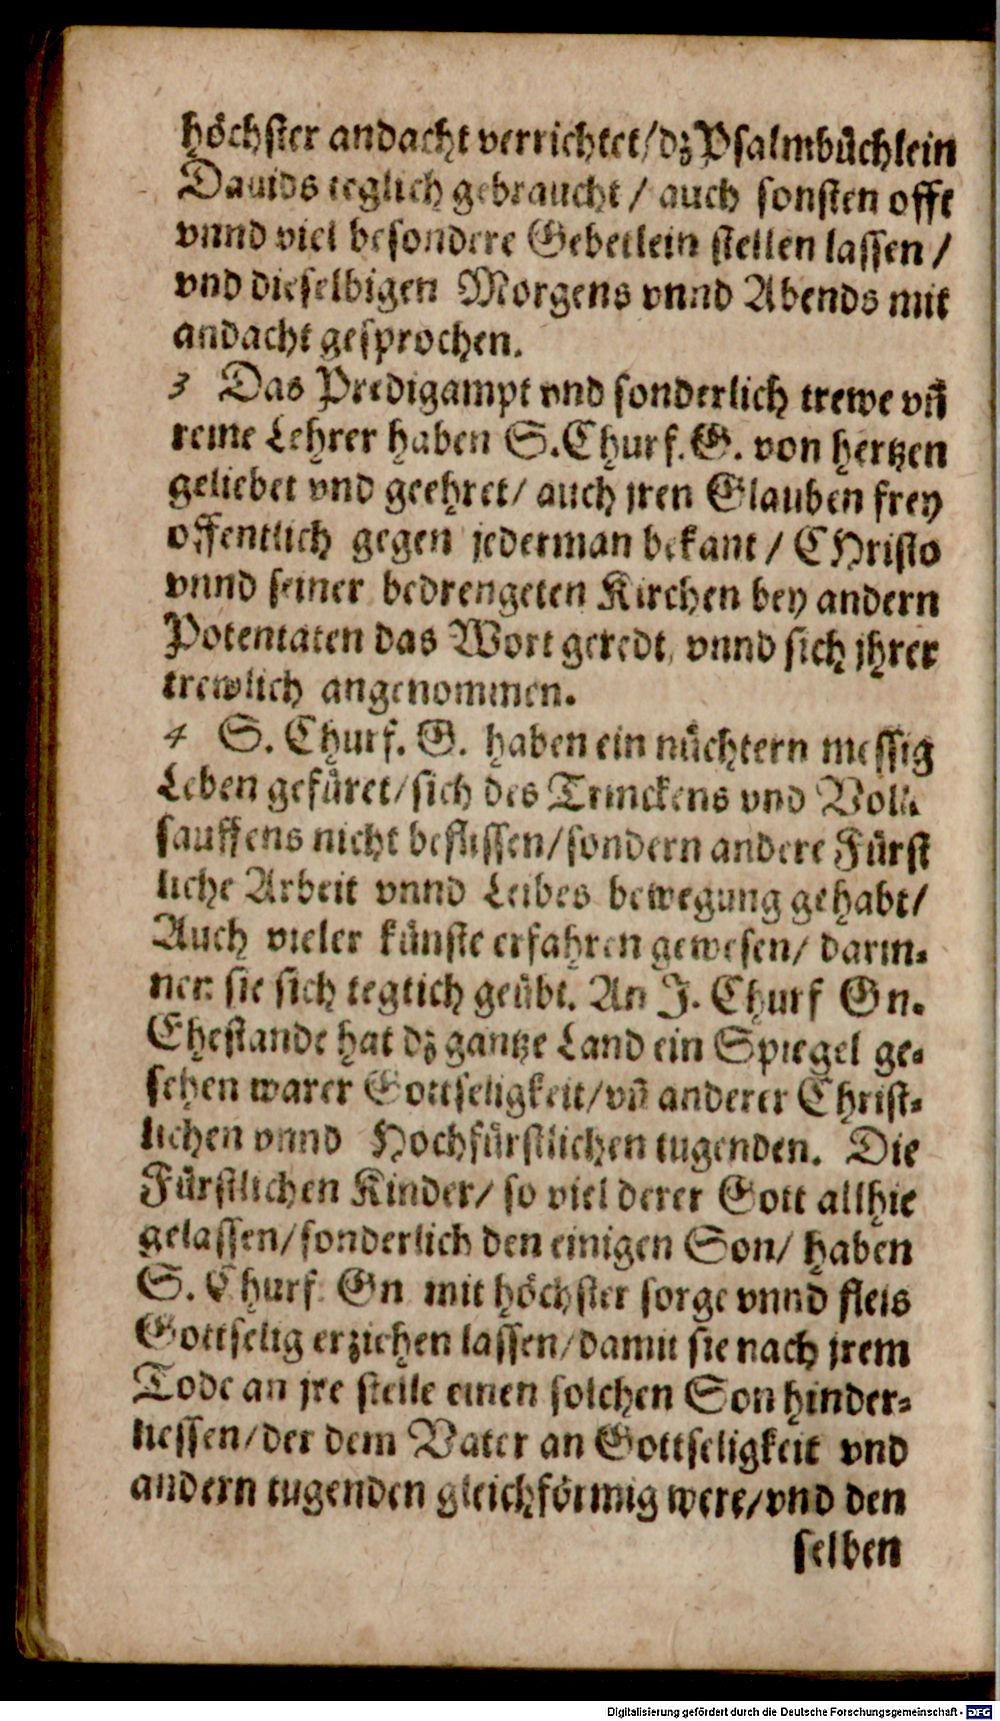 höchster andacht verrichtet/dz Psalmbüchlein
Dauids teglich gebraucht / auch sonsten offt
vnnd viel besondere Gebetlein stellen lassen /
vnd dieselbigen Morgens vnnd Abends mit
andacht gesprochen.
3 Das Predigampt vnd sonderlich trewe vñ
reine Lehrer haben S.Churf.G. von hertzen
geliebet vnd geehret/ auch jren Glauben frey
offentlich gegen jederman bekant / CHristo
vnnd seiner bedrengeten Kirchen bey andern
Potentaten das Wort geredt, vnnd sich jhrer
trewlich angenommen.
4 S. Churf. G. haben ein nüchtern messig
Leben gefüret/sich des Trinckens vnd Voll-
sauffens nicht beflissen/sondern andere Fürst
liche Arbeit vnnd Leibes bewegung gehabt/
Auch vieler künste erfahren gewesen/ darin-
nen sie sich teglich geübt. An J. Churf Gn.
Ehestande hat dz gantze Land ein Spiegel ge-
sehen warer Gottseligkeit/vñ anderer Christ-
lichen vnnd Hochfürstlichen tugenden. Die
Fürstlichen Kinder/ so viel derer Gott allhie
gelassen/sonderlich den einigen Son/ haben
S. Churf Gn mit höchster sorge vnnd fleis
Gottselig erziehen lassen/damit sie nach jrem
Tode an jre stelle einen solchen Son hinder-
liessen/der dem Vater an Gottseligkeit vnd
andern tugenden gleichförmig were/vnd den
selben
Digitalisierung gefördert durch die Deutsche Forschungsgemeinschaft - DFG